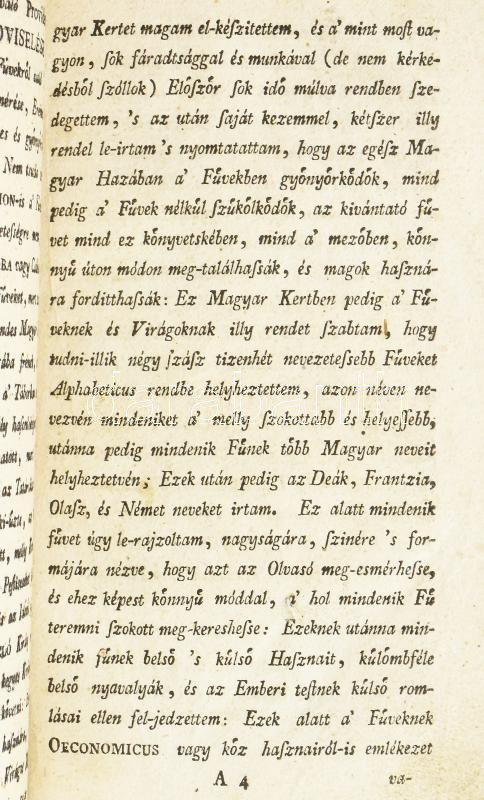 gyar Kertet magam el-kéſzitettem, és a' mint moſt va-
gyon, ſok fáradtsággal és munkával (de nem kérke-
désből ſzóllok) Elöſzör ſok idő múlva rendben ſze-
degettem, 's az után ſaját kezemmel, kétſzer illy
rendel le-irtam 's nyomtatattam, hogy az egéſz Ma-
gyar Hazában a' Fűvekben gyönyörködök, mind
pedig a' Fűvek nélkűl ſzűkölködök, az kivántató fű-
vet mind ez könyvetskében, mind a' mezőben, kön-
nyű úton módon meg-találhaſsák, és magok haſzná-
ra forditthaſsák: Ez Magyar Kertben pedig a' Fű-
veknek és Virágoknak illy rendet ſzabtam, hogy
tudni-illik négy ſzász tizenhét nevezeteſsebb Fűveket
Alphabeticus rendbe helyheztettem, azon néven ne-
vezvén mindeniket a' melly ſzokottabb és helyeſſebb,
utánna pedig mindenik Fűnek több Magyar neveit
helyheztetvén; Ezek után pedig az Deák, Frantzia,
Olaſz, és Német neveket irtam. Ez alatt mindenik
fűvet úgy le-rajzoltam, nagyságára, ſzinére 's for-
májára nézve, hogy azt az Olvasó meg-esmérheſse,
és ehez képest könnyű móddal, a' hol mindenik Fű
teremni ſzokott meg-kereshеſse: Ezeknek utánna min-
denik fűnek belső 's kűlső Haſznait, kűlömbféle
belső nyavalyák, és az Emberi teſtnek kűlső rom-
lásai ellen fel-jedzettem: Ezek alatt a' Fűveknek
OECONOMICUS vagy köz haſznairól-is emlékezet
A 4 va-